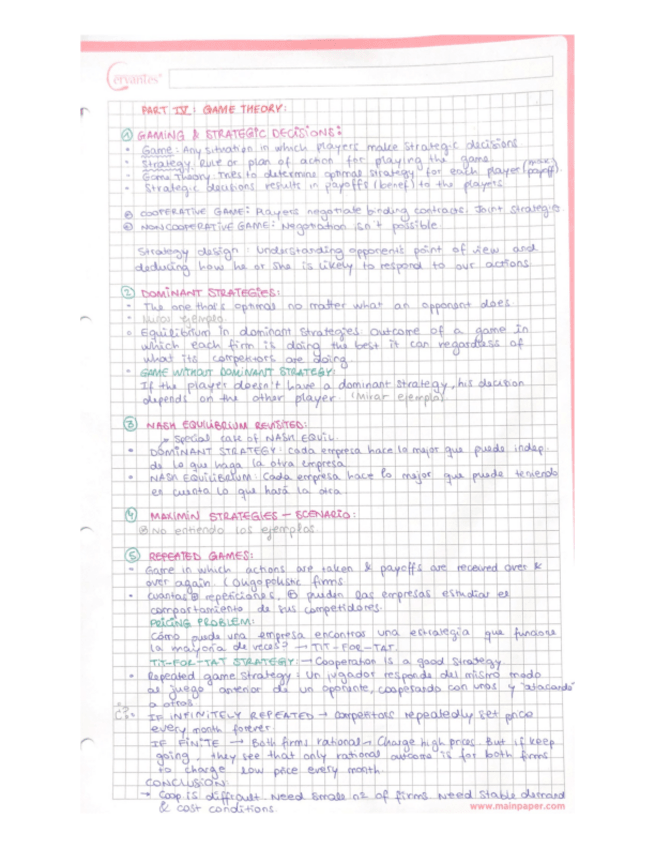 Cervantes
PART IV: GAME THEORY:
① GAMING & STRATEGIC DECISIONS:
- Game: Any situation in which players make strategic decisions
- Strategy: Rule or plan of action for playing the game
- Game Theory: Tries to determine optimal strategy for each player (payoff).
- Strategic decisions results in payoffs (benef) to the players
COOPERATIVE GAME: Players negotiate binding contracts. Joint strategies
NONCOOPERATIVE GAME: Negotiation isn't possible
Strategy design: Understanding opponent's point of view and
deducing how he or she is likely to respond to our actions
② DOMINANT STRATEGIES:
- The one that's optimal no matter what an opponent does
- Mirar ejemplo
Equilibrium in dominant strategies outcome of a game in
which each firm is doing the best it can regardless of
what its competitors are doing
- GAME WITHOUT DOMINANT STRATEGY:
If the player doesn't have a dominant strategy, his decision
depends on the other player. (Mirar ejemplo)
③ NASH EQUILIBRIUM REVISITED:
Special case of NASH EQUIL.
- DOMINANT STRATEGY: Cada empresa hace lo mejor que puede indep.
de lo que haga la otra empresa
- NASH EQUILIBRIUM: Cada empresa hace lo mejor que puede teniendo
en cuenta lo que hará la otra
④ MAXIMIN STRATEGIES - SCENARIO:
No entiendo los ejemplos
⑤ REPEATED GAMES:
- Game in which actions are taken & payoffs are received over &
over again. (Oligopolistic firms
- Cuantas repeticiones, pueden las empresas estudiar el
comportamiento de sus competidores.
PRICING PROBLEM:
Cómo puede una empresa encontrar una estrategia que funcione
la mayoría de veces? → TIT-FOR-TAT
TIT-FOR-TAT STRATEGY: → Cooperation is a good strategy
- Repeated game strategy: Un jugador responde del mismo modo
al juego anterior de un oponente, cooperando con unos y "atacando"
a otros.
IF INFINITELY REPEATED → competitors repeatedly set price
every month forever
IF FINITE → Both firms rational → Charge high prices But if keep
going, they see that only rational outcome is for both firms
to charge low price every month.
CONCLUSION:
→ Coop is difficult. Need small nº of firms. Need stable demand
& cost conditions.
www.mainpaper.com